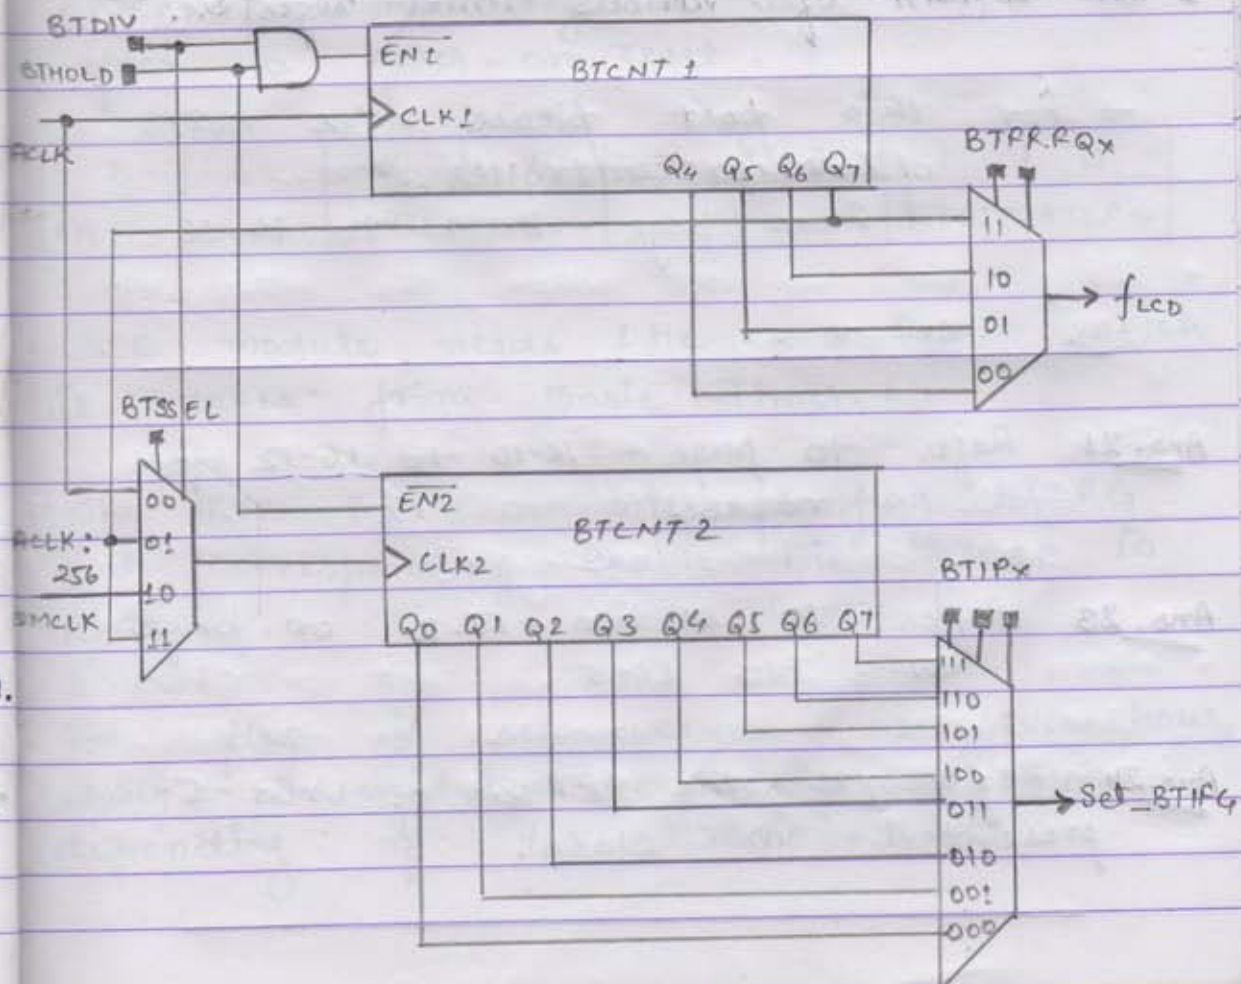 BTDIV
BTHOLD
EN1
BTCNT 1
CLK1
ACLK
Q4 Q5 Q6 Q7
BTFRFQx
11
10
01
00
fLCD
BTSSEL
00
ACLK:
256
01
10
SMCLK
11
EN2
BTCNT 2
CLK2
Q0 Q1 Q2 Q3 Q4 Q5 Q6 Q7
BTIPx
111
110
101
100
011
010
001
000
Set_BTIFG